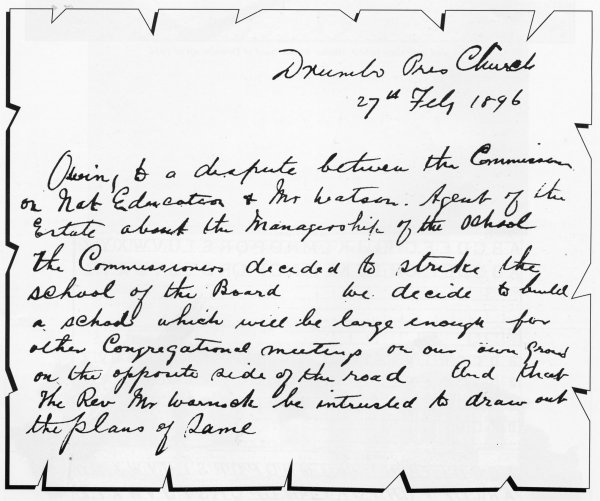 Drumbo Pres Church
27th Feby 1896
Owing to a dispute between the Commissioners
on Nat Education & Mr Watson. Agent of the
Estate about the Managership of the School
the Commissioners decided to strike the
school of the Board we decide to build
a school which will be large enough for
other Congregational meetings on our own Ground
on the opposite side of the road And that
the Rev Mr Warnock be intrusted to draw out
the plans of Same